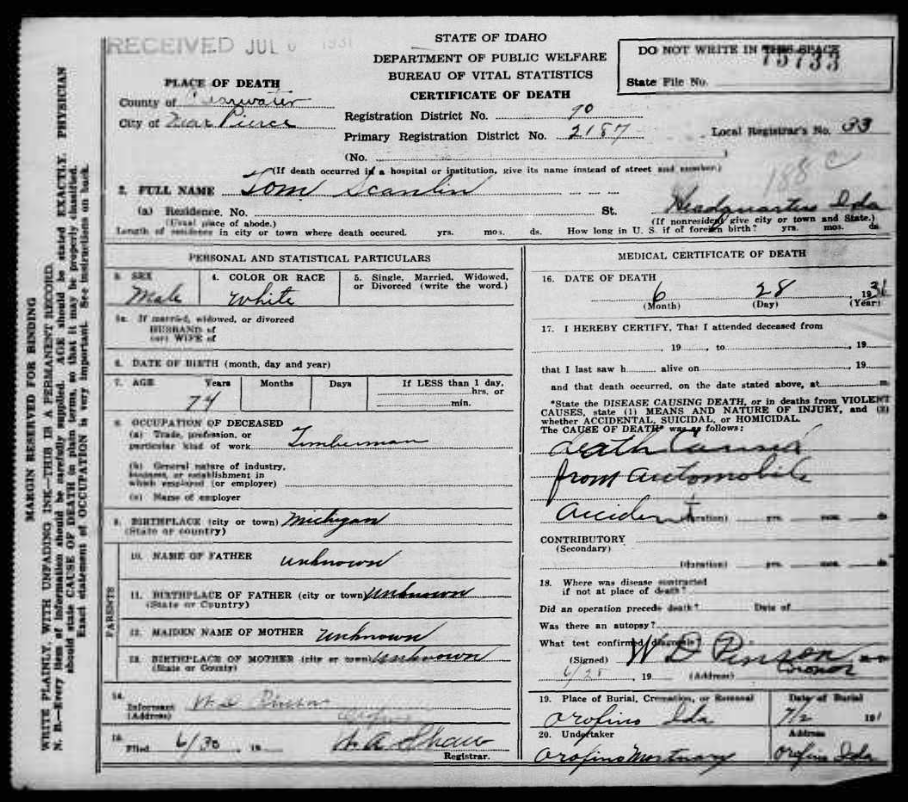 RECEIVED JUL 1931
STATE OF IDAHO
DEPARTMENT OF PUBLIC WELFARE
BUREAU OF VITAL STATISTICS
CERTIFICATE OF DEATH
DO NOT WRITE IN THIS SPACE
75733
State File No.
PLACE OF DEATH
County of Clearwater
City of Near Pierce
Registration District No. 90
Primary Registration District No. 2187
Local Registrar's No. 33
(No. )
188 c
(If death occurred in a hospital or institution, give its name instead of street and number.)
2. FULL NAME Tom Scanlin
(a) Residence. No. St. Headquarters Ida
(Usual place of abode.) (If nonresident give city or town and State.)
Length of residence in city or town where death occured. yrs. mos. ds. How long in U. S. if of foreign birth? yrs. mos. ds.
PERSONAL AND STATISTICAL PARTICULARS
3. SEX
Male
4. COLOR OR RACE
White
5. Single, Married, Widowed,
or Divorced (write the word.)
5a. If married, widowed, or divorced
HUSBAND of
(or) WIFE of
6. DATE OF BIRTH (month, day and year)
7. AGE Years Months Days If LESS than 1 day,
hrs. or
74 min.
8. OCCUPATION OF DECEASED
(a) Trade, profession, or
particular kind of work Timberman
(b) General nature of industry,
business, or establishment in
which employed (or employer)
(c) Name of employer
9. BIRTHPLACE (city or town) Michigan
(State or country)
PARENTS
10. NAME OF FATHER unknown
11. BIRTHPLACE OF FATHER (city or town) unknown
(State or Country)
12. MAIDEN NAME OF MOTHER unknown
13. BIRTHPLACE OF MOTHER (city or town) unknown
(State or County)
14.
Informant W. D. Pinson
(Address) Orofino
15.
Filed 6/30, 19
Registrar.
MEDICAL CERTIFICATE OF DEATH
16. DATE OF DEATH
6 28 1931
(Month) (Day) (Year)
17. I HEREBY CERTIFY, That I attended deceased from
19 , to , 19
that I last saw h alive on , 19
and that death occurred, on the date stated above, at m
*State the DISEASE CAUSING DEATH, or in deaths from VIOLENT
CAUSES, state (1) MEANS AND NATURE OF INJURY, and (2)
whether ACCIDENTAL, SUICIDAL, or HOMICIDAL.
The CAUSE OF DEATH* was as follows:
death Caused
from automobile
accident
(duration) yrs. mos. ds.
CONTRIBUTORY
(Secondary)
(duration) yrs. mos. ds.
18. Where was disease contracted
if not at place of death?
Did an operation precede death? Date of
Was there an autopsy?
What test confirmed diagnosis?
(Signed) W D Pinson
6/28, 19 (Address) Coronor
19. Place of Burial, Cremation, or Removal Date of Burial
Orofino Ida 7/2 191
20. Undertaker Address
Orofino Mortuary Orofino Ida
MARGIN RESERVED FOR BINDING
WRITE PLAINLY, WITH UNFADING INK—THIS IS A PERMANENT RECORD.
N. B.—Every item of information should be carefully supplied. AGE should be stated EXACTLY. PHYSICIAN
should state CAUSE OF DEATH in plain terms, so that it may be properly classified.
Exact statement of OCCUPATION is very important. See instructions on back.